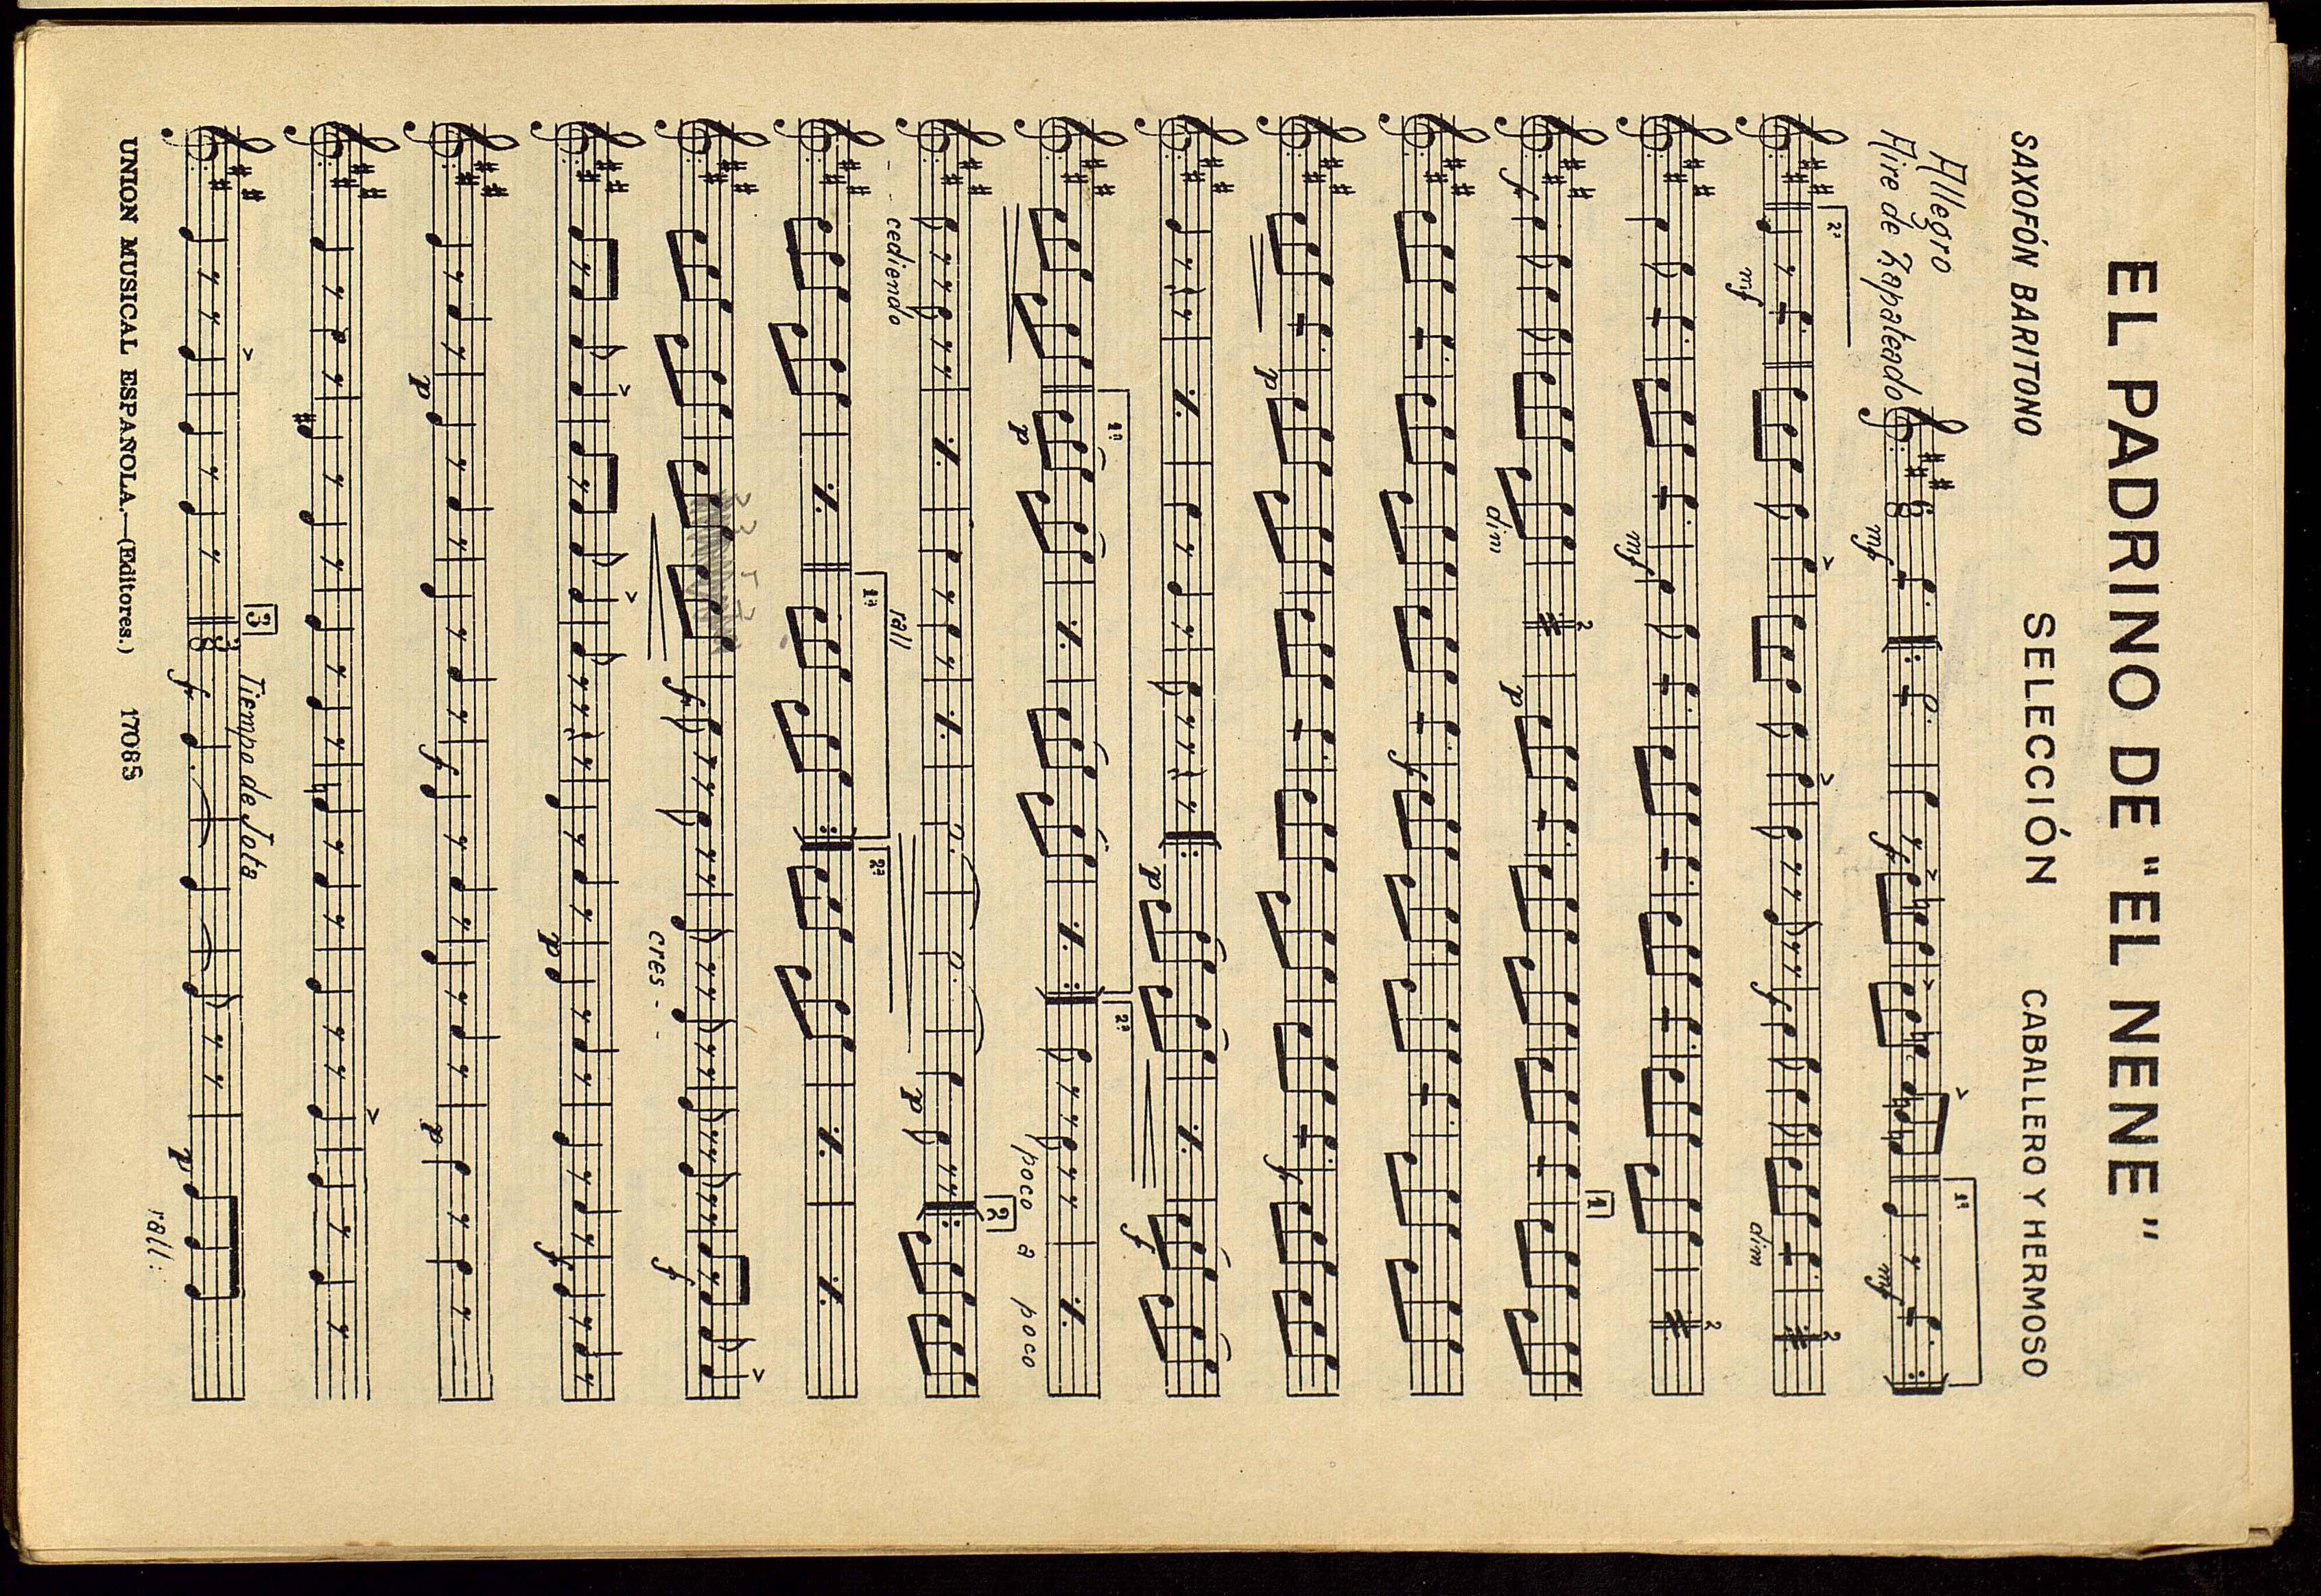 EL PADRINO DE "EL NENE"
SAXOFÓN BARITONO SELECCIÓN CABALLERO Y HERMOSO
Allegro
Aire de Zapateado
6 8 mf f 1ª mf
2ª mf f dim 2
mf 2
f dim 2 p 1
f
p f
p f
p 1ª 2ª poco a poco
cediendo rall p 2
1ª 2ª
f cres - - f
p f
p f p
3 Tiempo de Jota
3 8 f p rall:
UNION MUSICAL ESPAÑOLA.—(Editores.) 17085